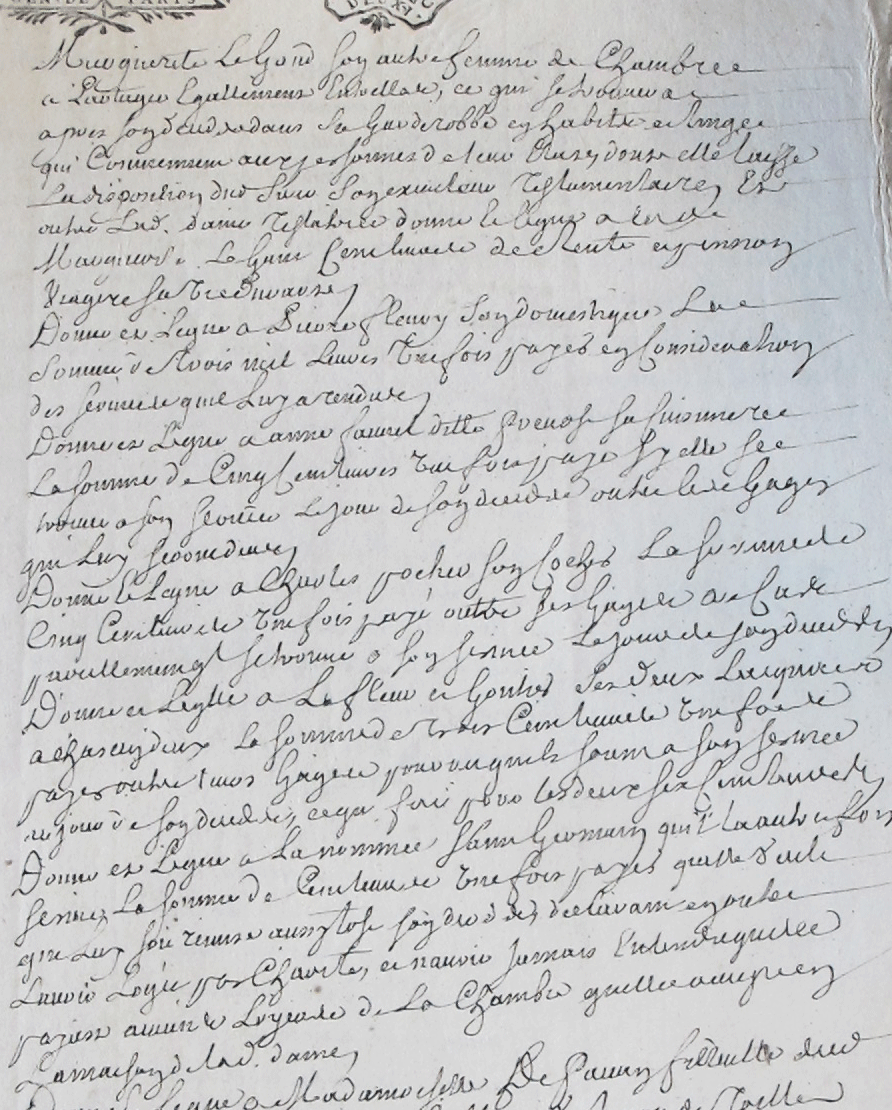 GEN. DE PARIS
DEUX
Marguerite Le Gond son autre femme de Chambre
a Partager Egallement Entrelles, ce qui se trouvera
apres son deceds dans sa Garderobbe en habits et linge
qui Conviennent aux personnes de leur dont elle laisse
La disposition dud. sieur son executeur Testamentaire, Et
outre Lad. dame Testatrice donne et legue a lad.
Marguerite Le Gond Cent livres de Rente et pension
Viagere sa vie durante,
Donne et Legue a Pierre fleury son domestique La
Somme de trois mil livres Une fois payés en Consideration
des services quil luy a rendus,
Donne et Legue a anne ditte sa Cuisiniere
La somme de Cinq Cent livres Une fois payé sy elle se
trouve a son service Le jour de son deceds outre les Gages
qui Luy seront deus,
Donne et Legue a Charles pocher son Cocher La somme de
Cinq Cent livres Une fois payé outre ses Gages au Cas
pareillement quil se trouve a son service Le jour de son deceds,
Donne et Legue a La fleur et Ses deux Lacquais
a chacun deux La somme de trois Cent livres Une fois
payés outre leurs Gages pourvu quils soient a son service
au jour de son deceds, ce qui fait pour les deux six Cent livres,
Donne et Legue a La nommée Saint Germain qui l'a autrefois
servie, La somme de Cent livres Une fois payés quelle Veut
que Luy soit remise aussytost son deceds, declarant en outre
L'avoir Logée par Charité, et n'avoir jamais Entendu quelle
payast aucuns Loyers de La Chambre quelle occupe en
La maison de lad. dame,
Legue a Madamoiselle De filleulle dud.